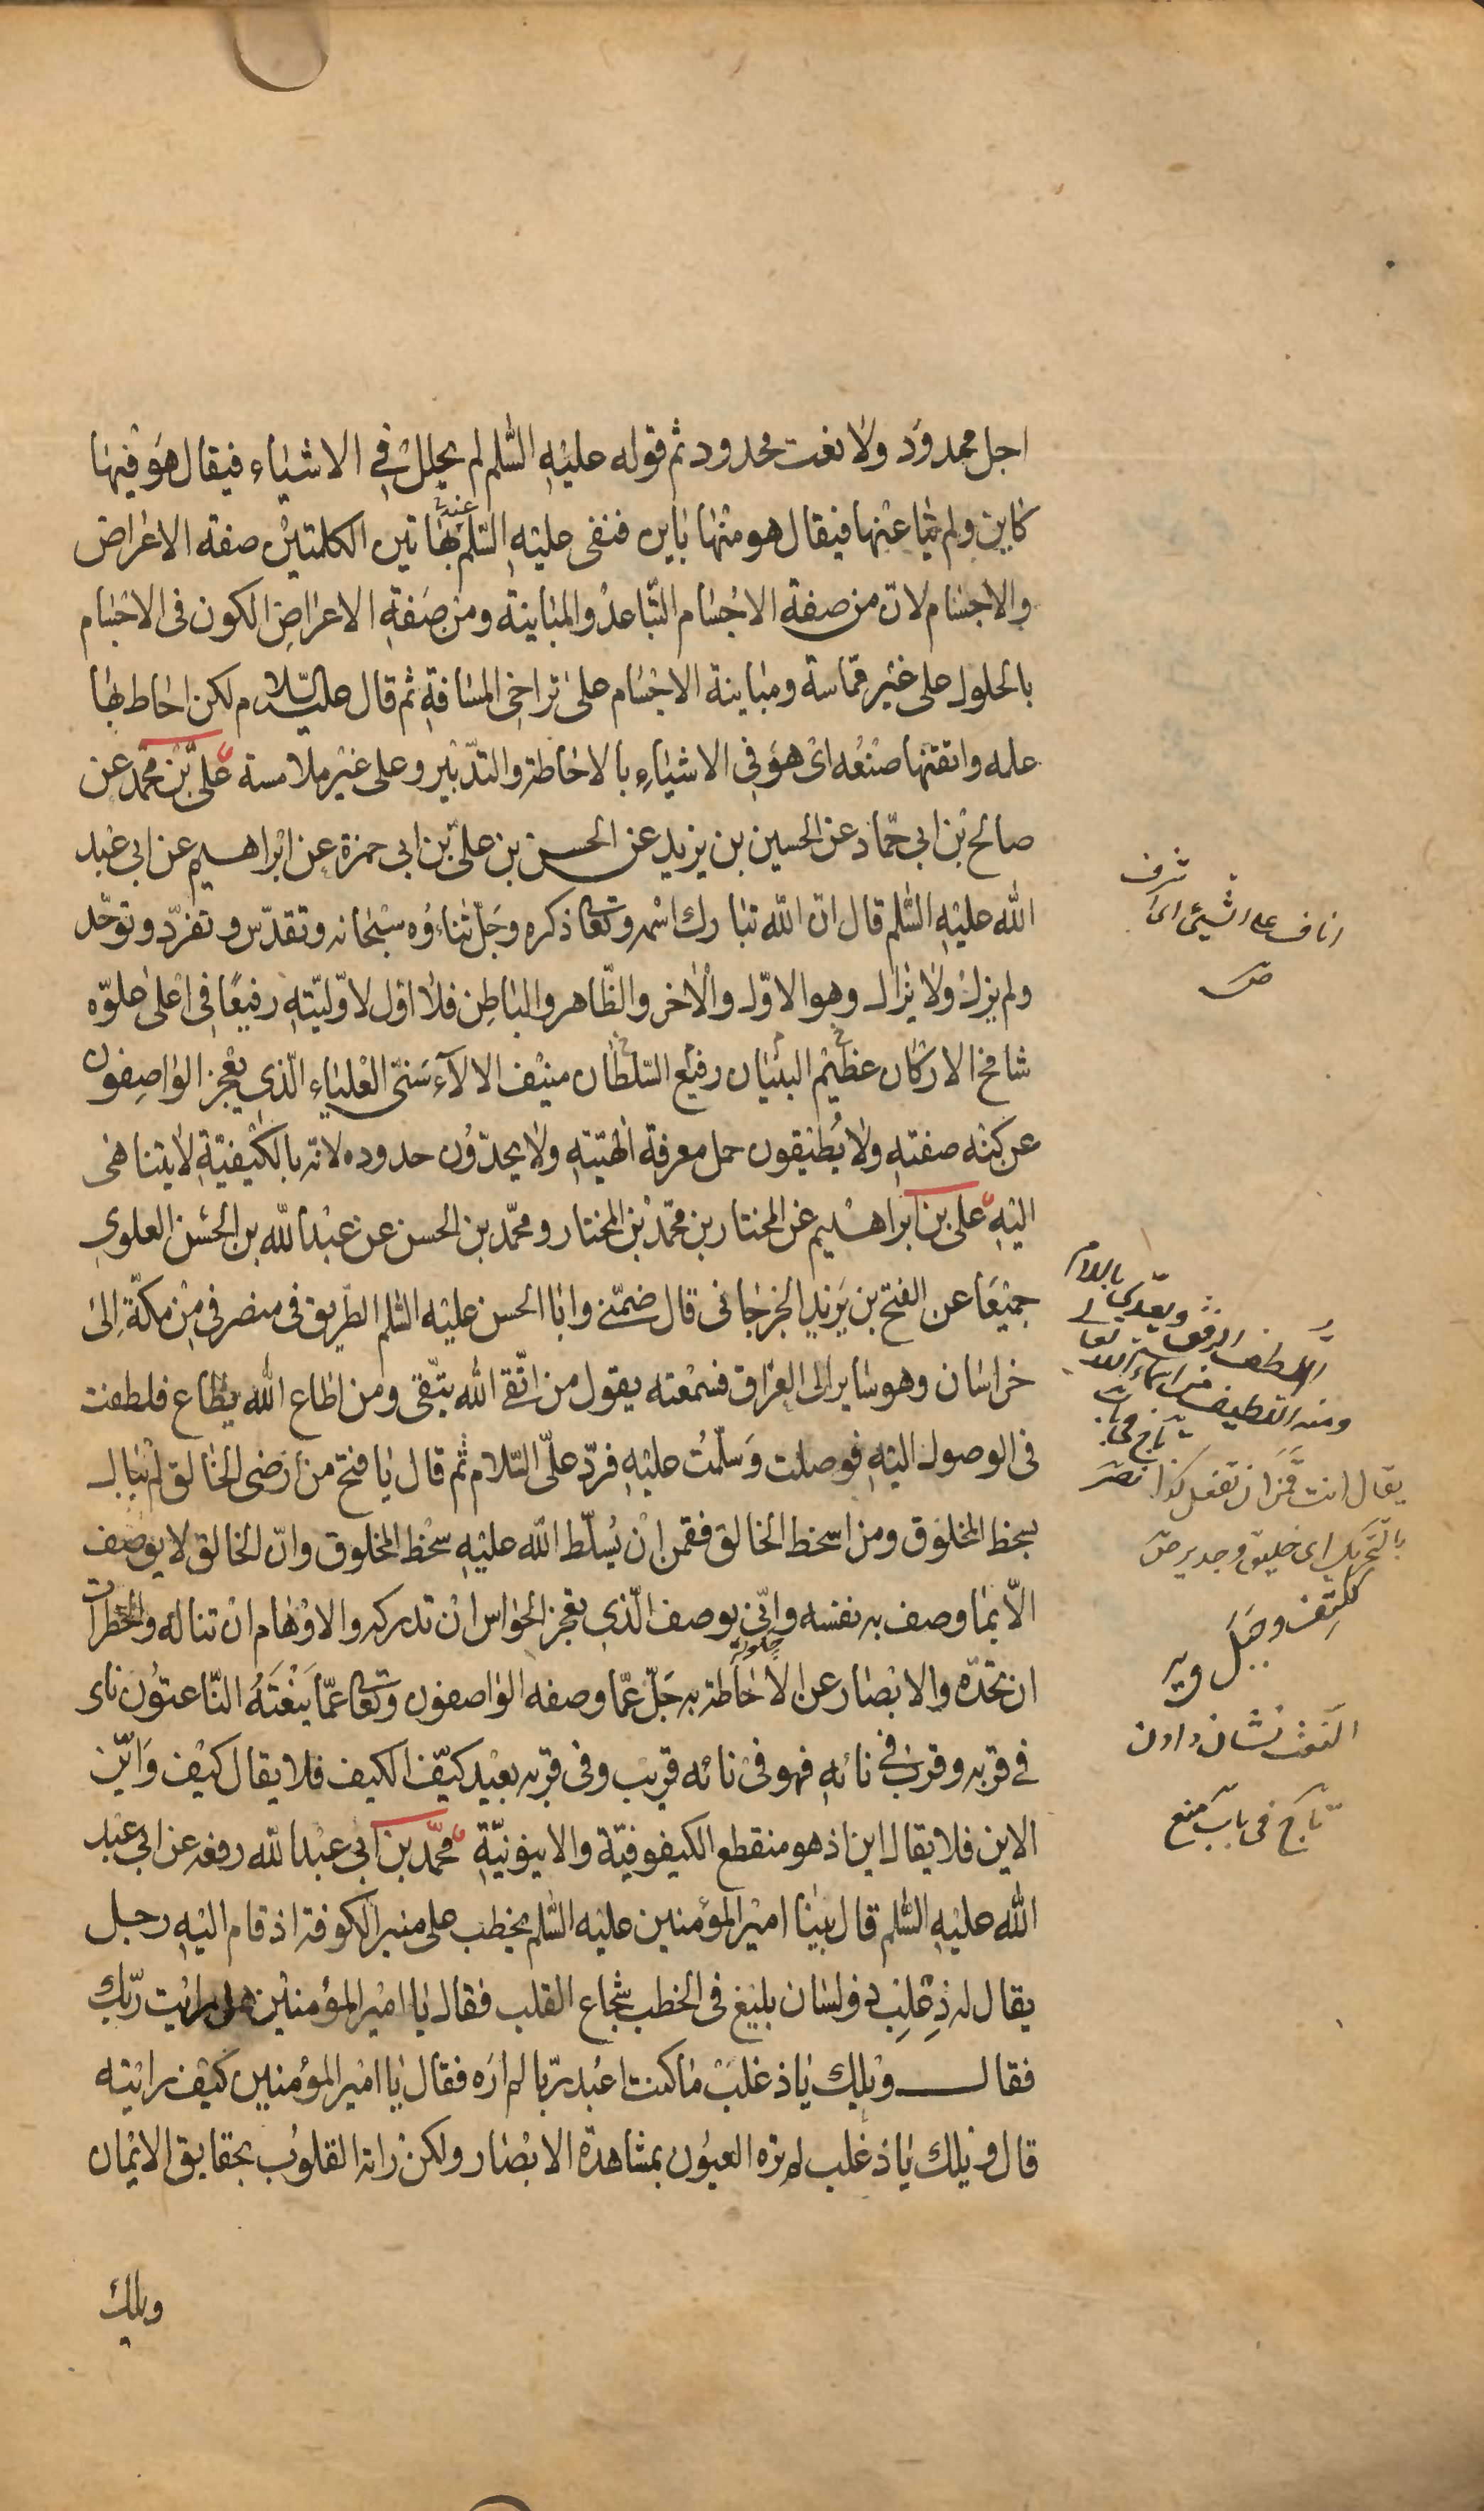 اجل ممدود ولا نعت محدود ثم قوله عليه السّلم لم يحلل في الاشياء فيقال هو فيها
كاين ولم ينا عنها فيقال هو منها باين فنفى عليه السّلم عنه بهاتين الكلمتين صفة الاعراض
والاجسام لان من صفة الاجسام التّباعد والمباينة ومن صفة الاعراض الكون فى الاجسام
بالحلول على غير مماسة ومباينة الاجسام على تراخى المسافة ثم قال عليه السّلام لكن احاط بها
علمه واتقنها صنعه اى هو في الاشياء بالاحاطة والتدبير وعلى غير ملامسة على بن محمد عن
صالح بن ابي حمّاد عن الحسين بن يزيد عن الحسن بن علىّ بن ابى حمزة عن ابراهيم عن ابى عبد
الله عليه السّلم قال انّ الله تبارك اسمه وتعا ذكره وجلّ ثناءُوه سبحانه وتقدّس وتفرّد وتوحّد
ولم يزل ولا يزال وهو الاوّل والاخر والظّاهر والباطن فلا اوّل لاوّليّته رفيعًا في اعلى علوّه
شامخ الاركان عظيم البنيان رفيع السّلطان منيف الالآء سَنىّ العلياء الّذي يعجز الواصفون
عن كنه صفته ولا يُطيقون حمل معرفة الهيّته ولا يحدّون حدوده لانه بالكيفيّة لا يتناهى
اليه على بن ابراهيم عن المختار بن محمّد بن المختار ومحمّد بن الحسن عن عبد الله بن الحسن العلوى
جميعًا عن الفتح بن يزيد الجرجانى قال ضمّنى وابا الحسن عليه السّلم الطّريق فى منصرفي من مكّة الى
خراسان وهو ساير الى العراق فسمعته يقول من اتّقى الله يتّقى ومن اطاع الله يطاع فلطفت
فى الوصول اليه فوصلت وسلّمتُ عليه فردّ علىّ السّلام ثم قال يا فتح من ارضى الخالق لم يبال
بسخط المخلوق ومن اسخط الخالق فقمن ان يُسلّط الله عليه سخط المخلوق وانّ الخالق لا يوصف
الّا بما وصف به نفسه وانّى يوصف الّذي يعجز الحواس ان تدركه والاوهام ان تناله والخطرات
ان تحدّه والابصار عن الاحاطة به جلّ عمّا وصفه الواصفون وتعا عمّا ينعته النّاعتون ناى
في قربه وقرب في نائه فهو فى نائه قريب وفى قربه بعيد كيّف الكيف فلا يقال كيف وايّن
الاين فلا يقال اين اذ هو منقطع الكيفوفيّة والاينونيّة محمّد بن ابى عبد الله رفعه عن ابى عبد
الله عليه السّلم قال بينا امير المؤمنين عليه السّلم يخطب على منبر الكوفة اذ قام اليه رجل
يقال له ذعلب ذو لسان بليغ فى الخطب شجاع القلب فقال يا امير المؤمنين هل رايت ربّك
فقال ويلك يا ذعلب ما كنت اعبد ربّا لم اره فقال يا امير المؤمنين كيف رايته
قال ويلك يا ذعلب لم تره العيون بمشاهدة الابصار ولكن راته القلوب بحقايق الايمان
ويلك
اناف على الشيئ اى شرف
ص
اللّطف الرفق ويعدّى بالام
ومنه اللطيف من اسماء الله تعا
تاج فى باب نصر
يقال انت قَمَن ان تفعل كذا
بالتحريك اى خليق وجدير ص
ككتِف وجَبَل ويه
النعت نشان دادن
تاج فى باب منع